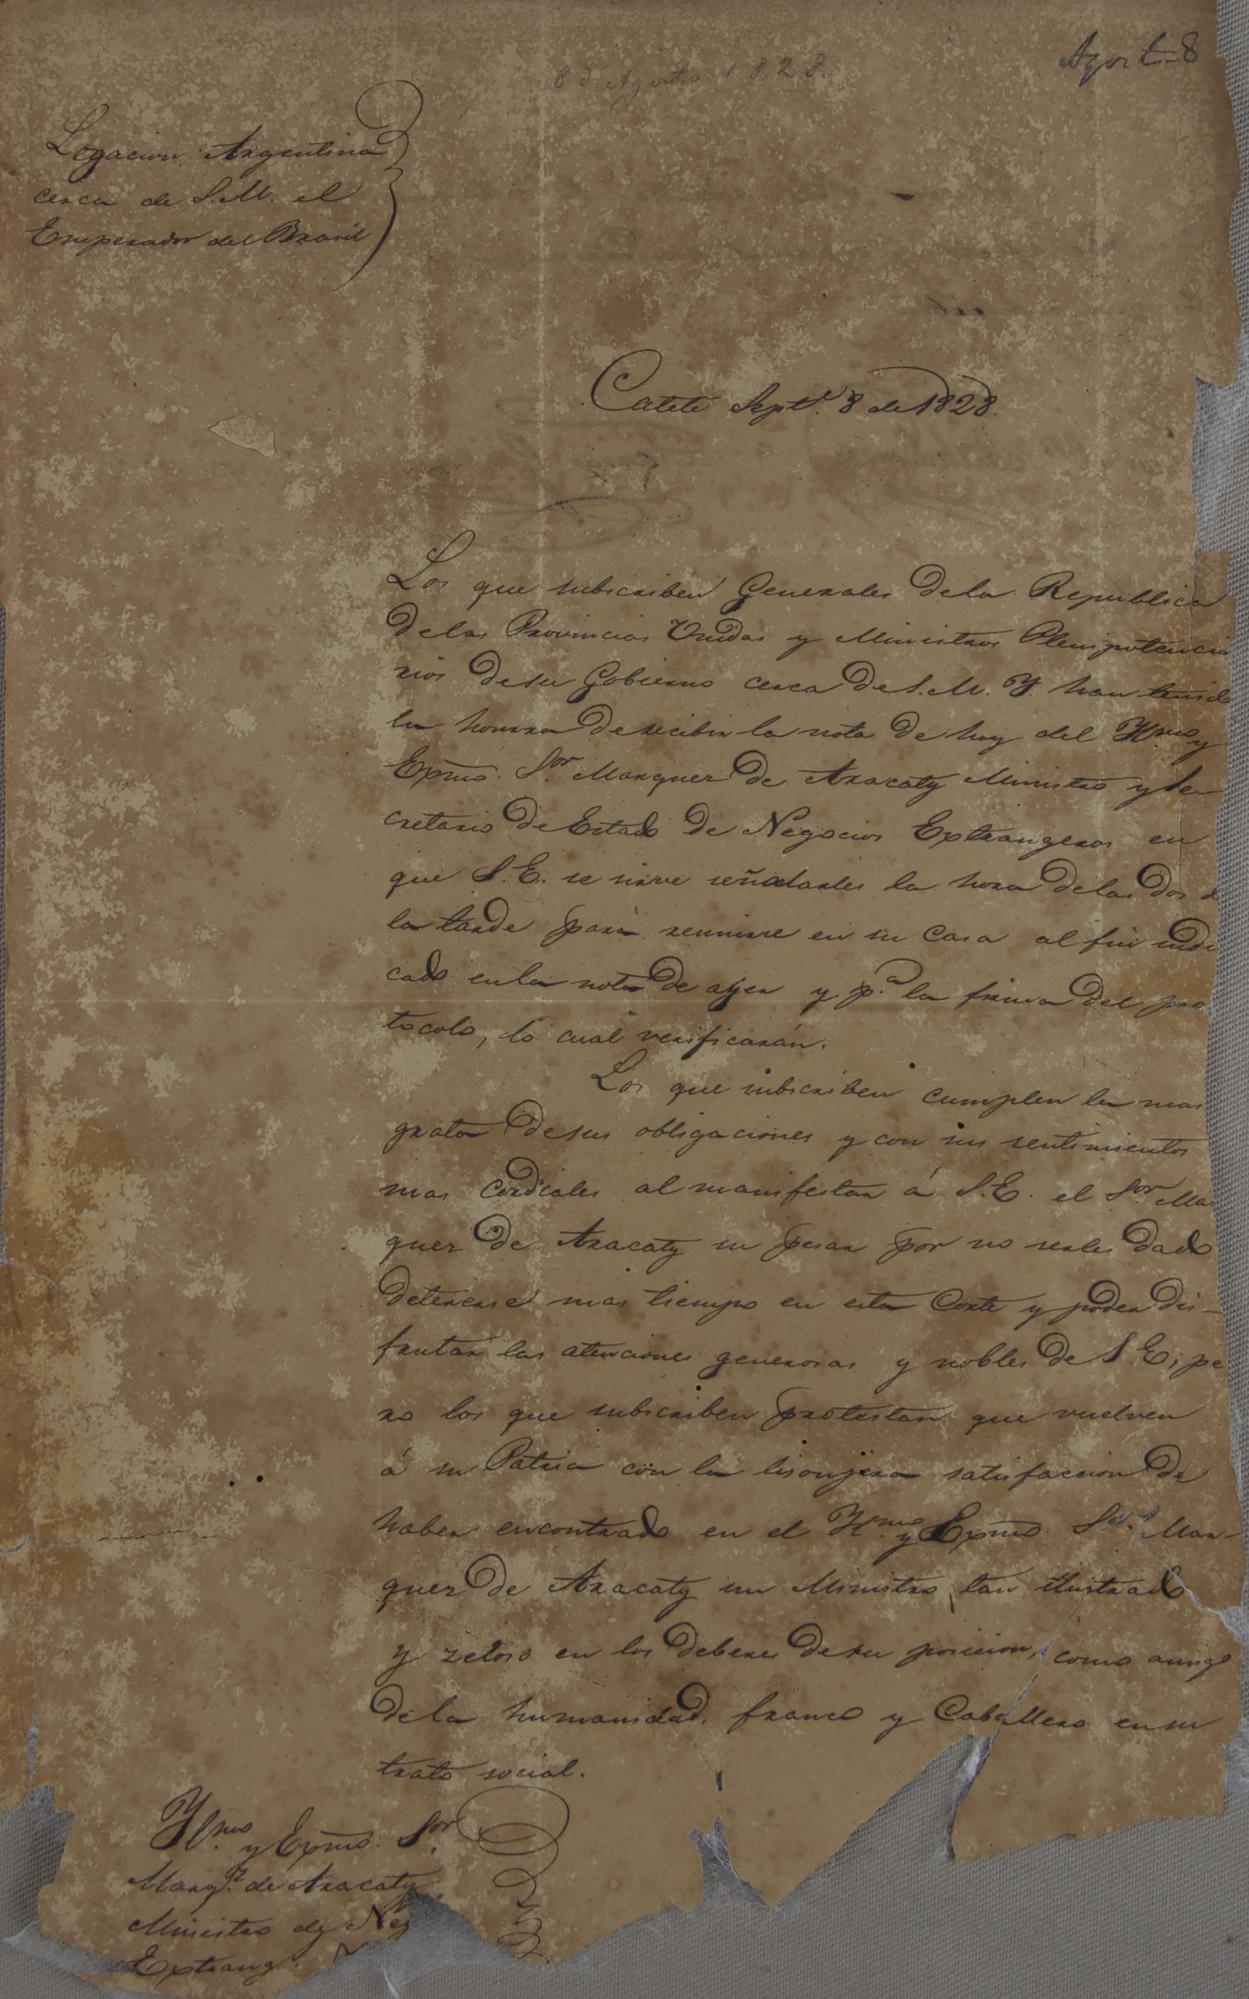 8 d Agosto 1828
Agost. 8
Legacion Argentina
cerca de S.M. el
Emperador del Brasil
Catete Septe. 8 de 1828.
Los que subscriben Generales de la Republica
de las Provincias Unidas y Ministros Plenipotencia
rios de su Gobierno cerca de S.M.Y. han tenido
la honrra de recibir la nota de hoy del Yllmo y
Exmo. Sor. Marquez de Aracaty Ministro y Se-
cretario de Estado de Negocios Extrangeros en
que S.E. se sirve señalarles la hora de las dos d
la tarde para reunirse en su casa al fin indi
cado en la nota de ayer y pa. la firma del pro
tocolo, lo cual verificarán.
Los que subscriben cumplen la mas
grata de sus obligaciones y con sus sentimientos
mas cordiales al manifestar á S.E. el Sor Mar
quez de Aracaty su pesar por no serles dado
detenerse mas tiempo en esta Corte y poder dis-
frutar las atenciones generosas y nobles de S.E; pe
ro los que subscriben protestan que vuelven
á su Patria con la lisonjera satisfaccion de
haber encontrado en el Yllmo y Exmo. Sor. Mar-
quez de Aracaty un Ministro tan ilustrado
y zeloso en los deberes de su posicion, como amigo
de la humanidad, franco y Caballero en su
trato social.
Yllmo. y Exmo. Sor.
Marqz. de Aracaty
Ministro de Neg
Extrang.